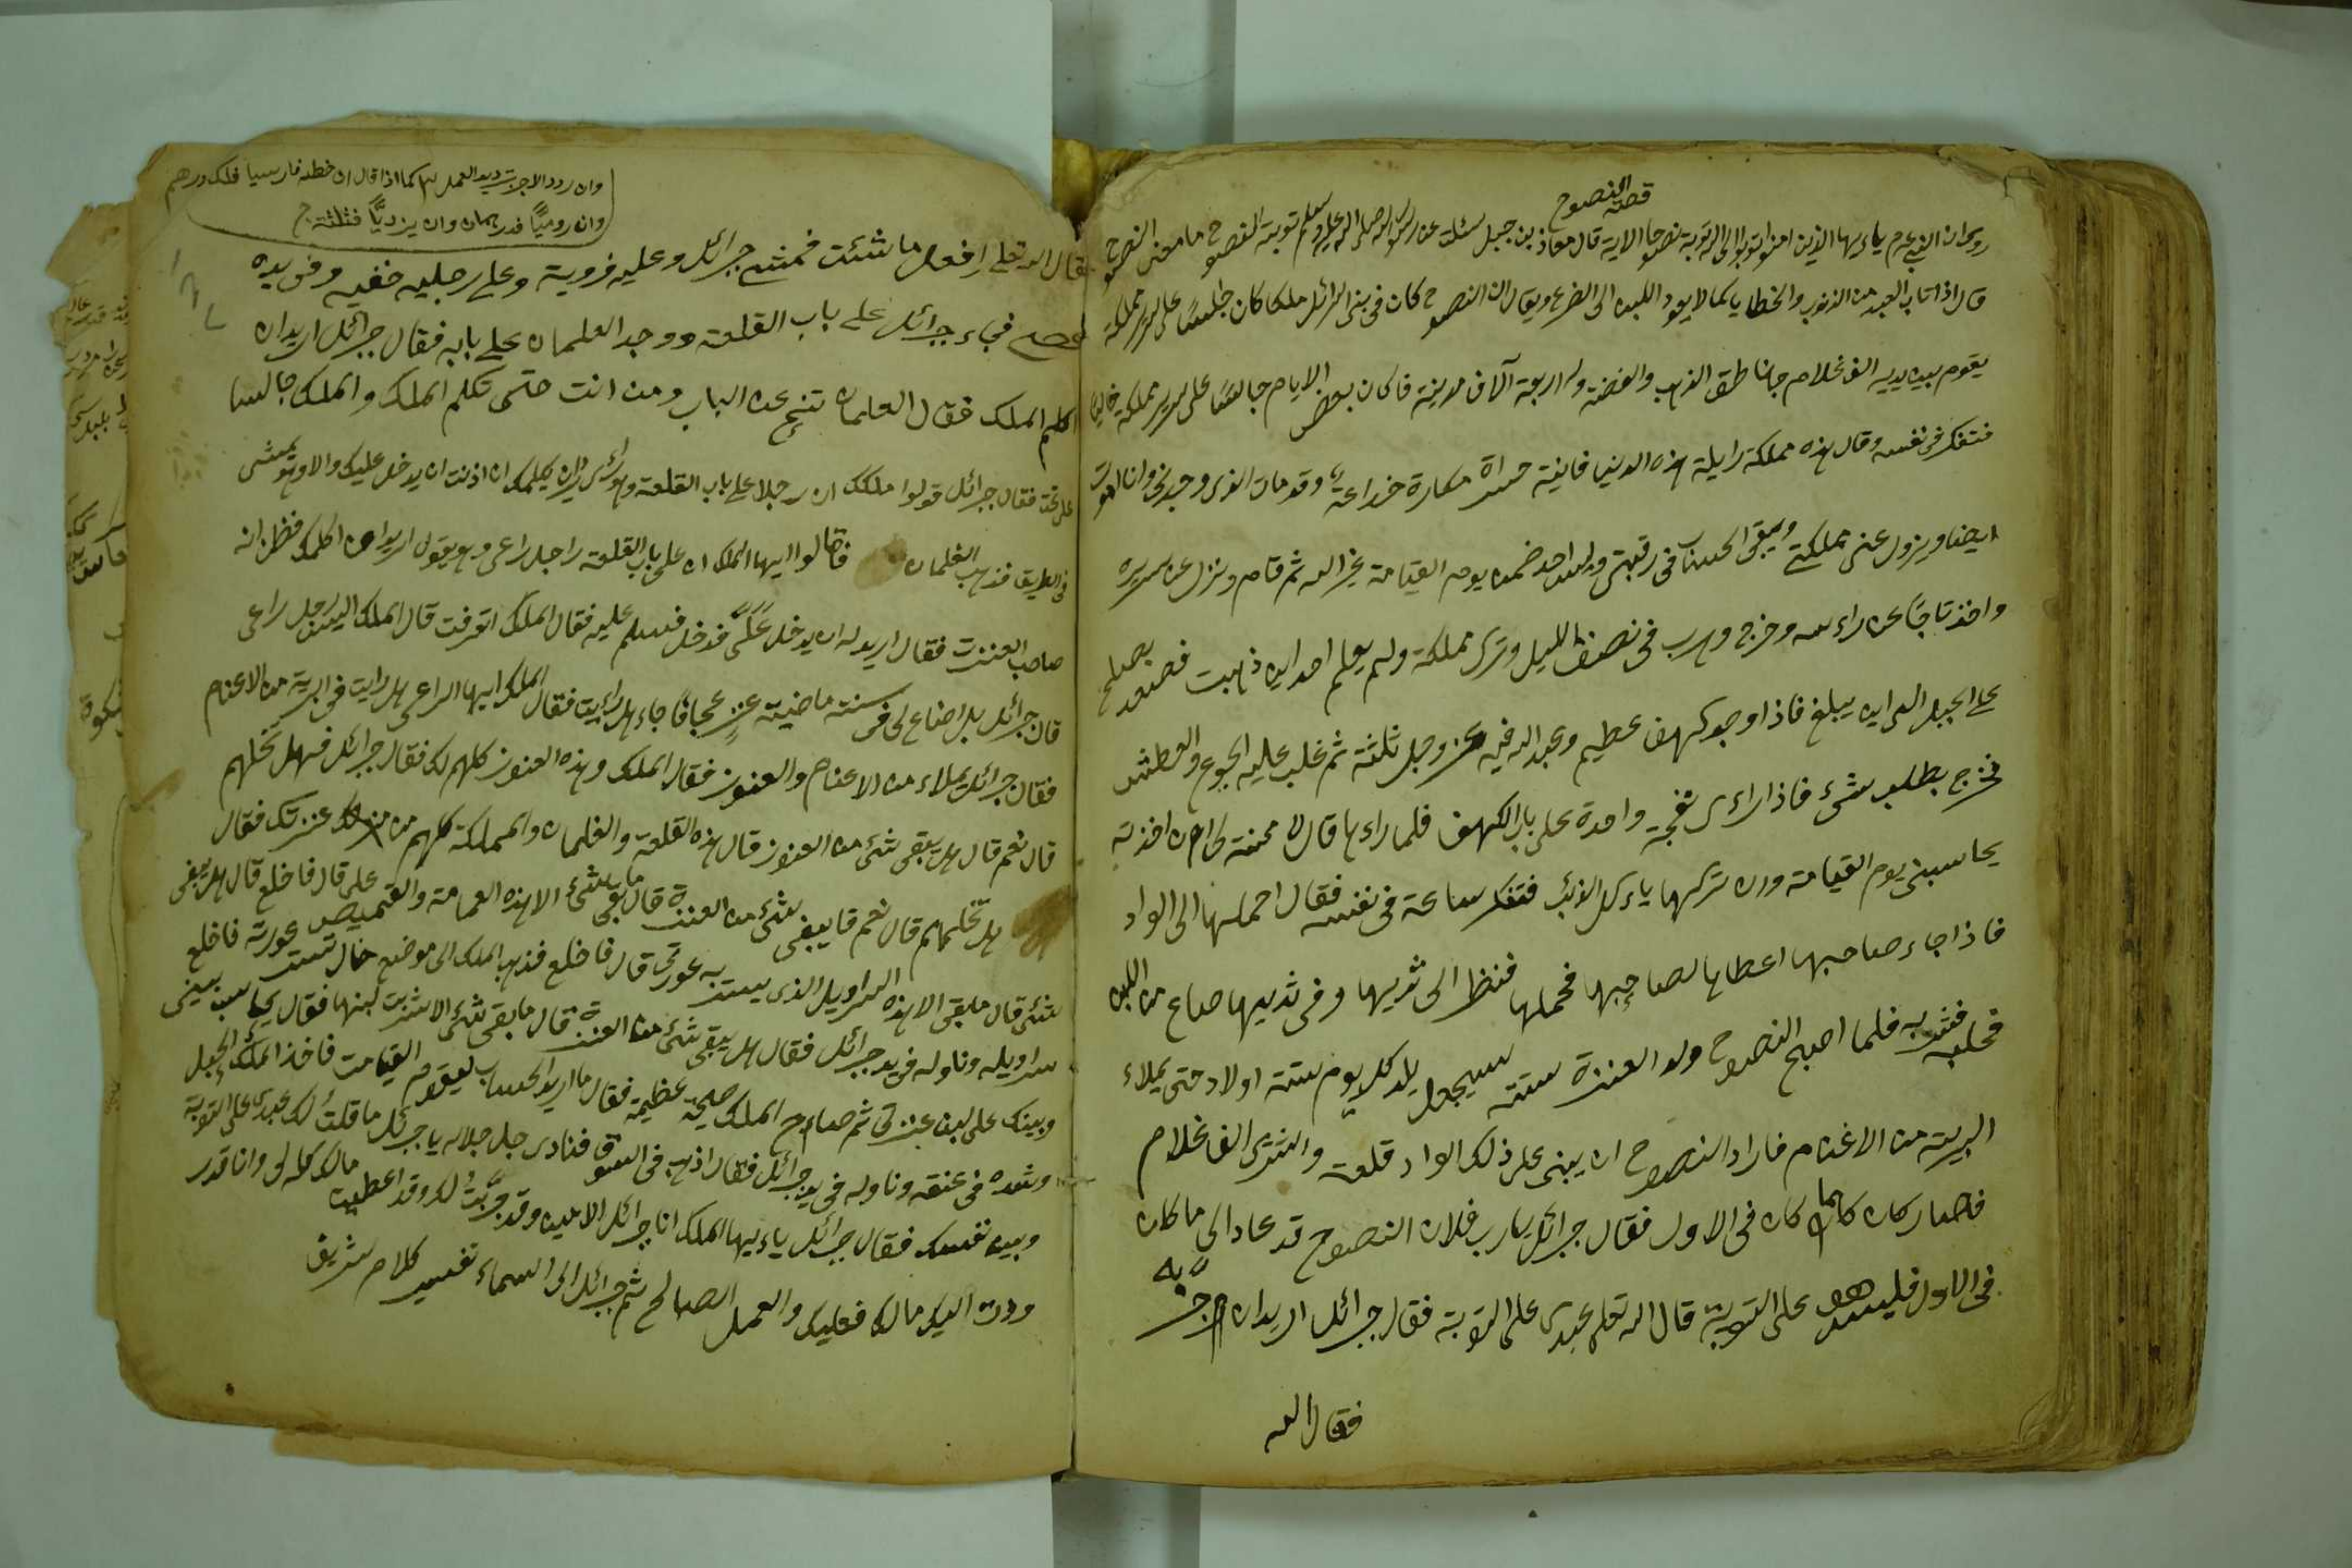 قصة النصوح
روى ان النبى عم ياءيها الذين امنوا توبوا الى الله توبة نصوحا الاية قال معاذ بن جبل سئلت عن رسول الله صلى الله عليه وسلم توبة النصوح ما معنى النصوح
قال اذا تاب العبد من الذنوب والخطايا كما لا يعود اللبن الى الضرع ويقال ان النصوح كان فى بنى اسرائل ملكا كان جالسا على سرير مملكته
يقوم بين يديه الف غلام الذهب والفضة وله اربعة آلاف مدينة فاكان بعض الايام جالسا على سرير مملكته خاليا
فتفكر فى نفسه وقال هذه مملكة زايلة هذه الدنيا فانية مكارة خداعة وقد مات ابوى وجدى وانا اموت
ايضا ويزول عنى مملكتى ويبقى الحساب فى رقبتى وليس احد يوم القيامة غير الله ثم قام ونزل عن سريره
واخذ تاجا عن راءسه وخرج وهرب فى نصف الليل وترك مملكة ولم يعلم احد اين ذهبت فصعد
على الجبل الى اين يبلغ فاذا وجد كهف عظيم وعبد الله فيه عز وجل ثلثة ثم غلب عليه الجوع والعطش
فخرج بطلب شىء فاذا راءى نعجة واحدة على باب الكهف فلما راءها قال لا محنة لى ان اخذته
يحاسبنى يوم القيامة وان تركها ياءكل الذئب فتفكر ساعة فى نفسه فقال احملها الى الواد
فاذا جاء صاحبها اعطاها لصاحبها فحملها فنظر الى ثديها وفى ثديها صاع من اللبن
فحلبه فشربه فلما اصبح النصوح ولد العنزة ستة يلد كل يوم ستة اولاد حتى يملاء
البرية من الاغنام فاراد النصوح ان يبنى على ذلك الواد قلعة واشترى الف غلام
فصار كان كما كان فى الاول فقال جبرائل يارب فلان النصوح قد عاد الى ما كان
فى الاول فليس هو على التوبة قال الله تعلى عبدى على التوبة فقال جبرائل اريد ان اجربه
فقال الله
وان ردد الاجرت ترديد العمل كما اذا قال ان خطته فارسيا فلك درهم
وان روميًّا فدرهمان وان يزديًّا فثلثة ج
فقال الله تعلى افعل ما شئت فمشى جبرائل وعليه فروية وعلى رجليه خفيه وفى يده
عصى فجاء جبرائل على باب القلعة ووجد الغلمان على بابه فقال جبرائل اريد ان
اكلم الملك فقال الغلمان تنح عن الباب ومن انت حتى تكلم الملك والملك جالسا
على تخت فقال جبرائل قولوا ملكك ان رجلا على باب القلعة يريد ان يكلمك ان اذنت ان يدخل عليك والا وهو يمشى
فى الطريق فذهب الغلمان فقالوا ايها الملك ان على باب القلعة راجل راعى وهو يقول اريد ان اكلمك فظن انه
صاحب العنزت فقال اريد له ان يدخل علىّ فدخل فسلم عليه فقال الملك اتعرفت قال الملك اليس رجل راعى
قال جبرائل بل اضاع لى فى سنة ماضية عنز عجافا جاء هل رايت فقال الملك ايها الراعى هل رايت فى البرية من الاغنام
فقال جبرائل يملاء من الاغنام والعنوز فقال الملك وهذه العنوز كلهم لك فقال جبرائل فهل تحلهم
قال نعم قال هل يبقى شئ من العنوز قال هذه القلعة والغلمان والمملكة كلهم من عنزتك فقال
هل تحلهم قال نعم قا يبقى شئ من العنزة قال ما بقى شئ الا هذه العمامة والقميص على قال فاخلع قال هل يبقى
شئ قال ما بقى الا هذه السراويل الذى يستر به عورتى قال فاخلع فذهب الملك الى موضع خال تستر عورته فاخلع
سراويله وناوله فى يد جبرائل فقال هل يبقى شئ من العنزة قال ما بقى شئ الا شربت لبنها فقال يحاسب بينى
وبينك على لبن عنزتى ثم صاح الملك صيحة عظيمة فقال ما اريد الحساب ليوم القيامت فاخذ الملك الحبل
وشده فى عنقه وناوله فى يد جبرائل فقال اذهب فى السوق فنادى جل جلاله يا جبرئل ما قلت لك عبدى على التوبة
وبين نفسك فقال جبرائل ياءيها الملك انا جبرائل الامين وقد جربت لك وقد اعطيت مالك كله لى وانا قدر
وردت اليك مالك فعليك والعمل الصالح ثم جبرائل الى السماء تفسير كلام شريف